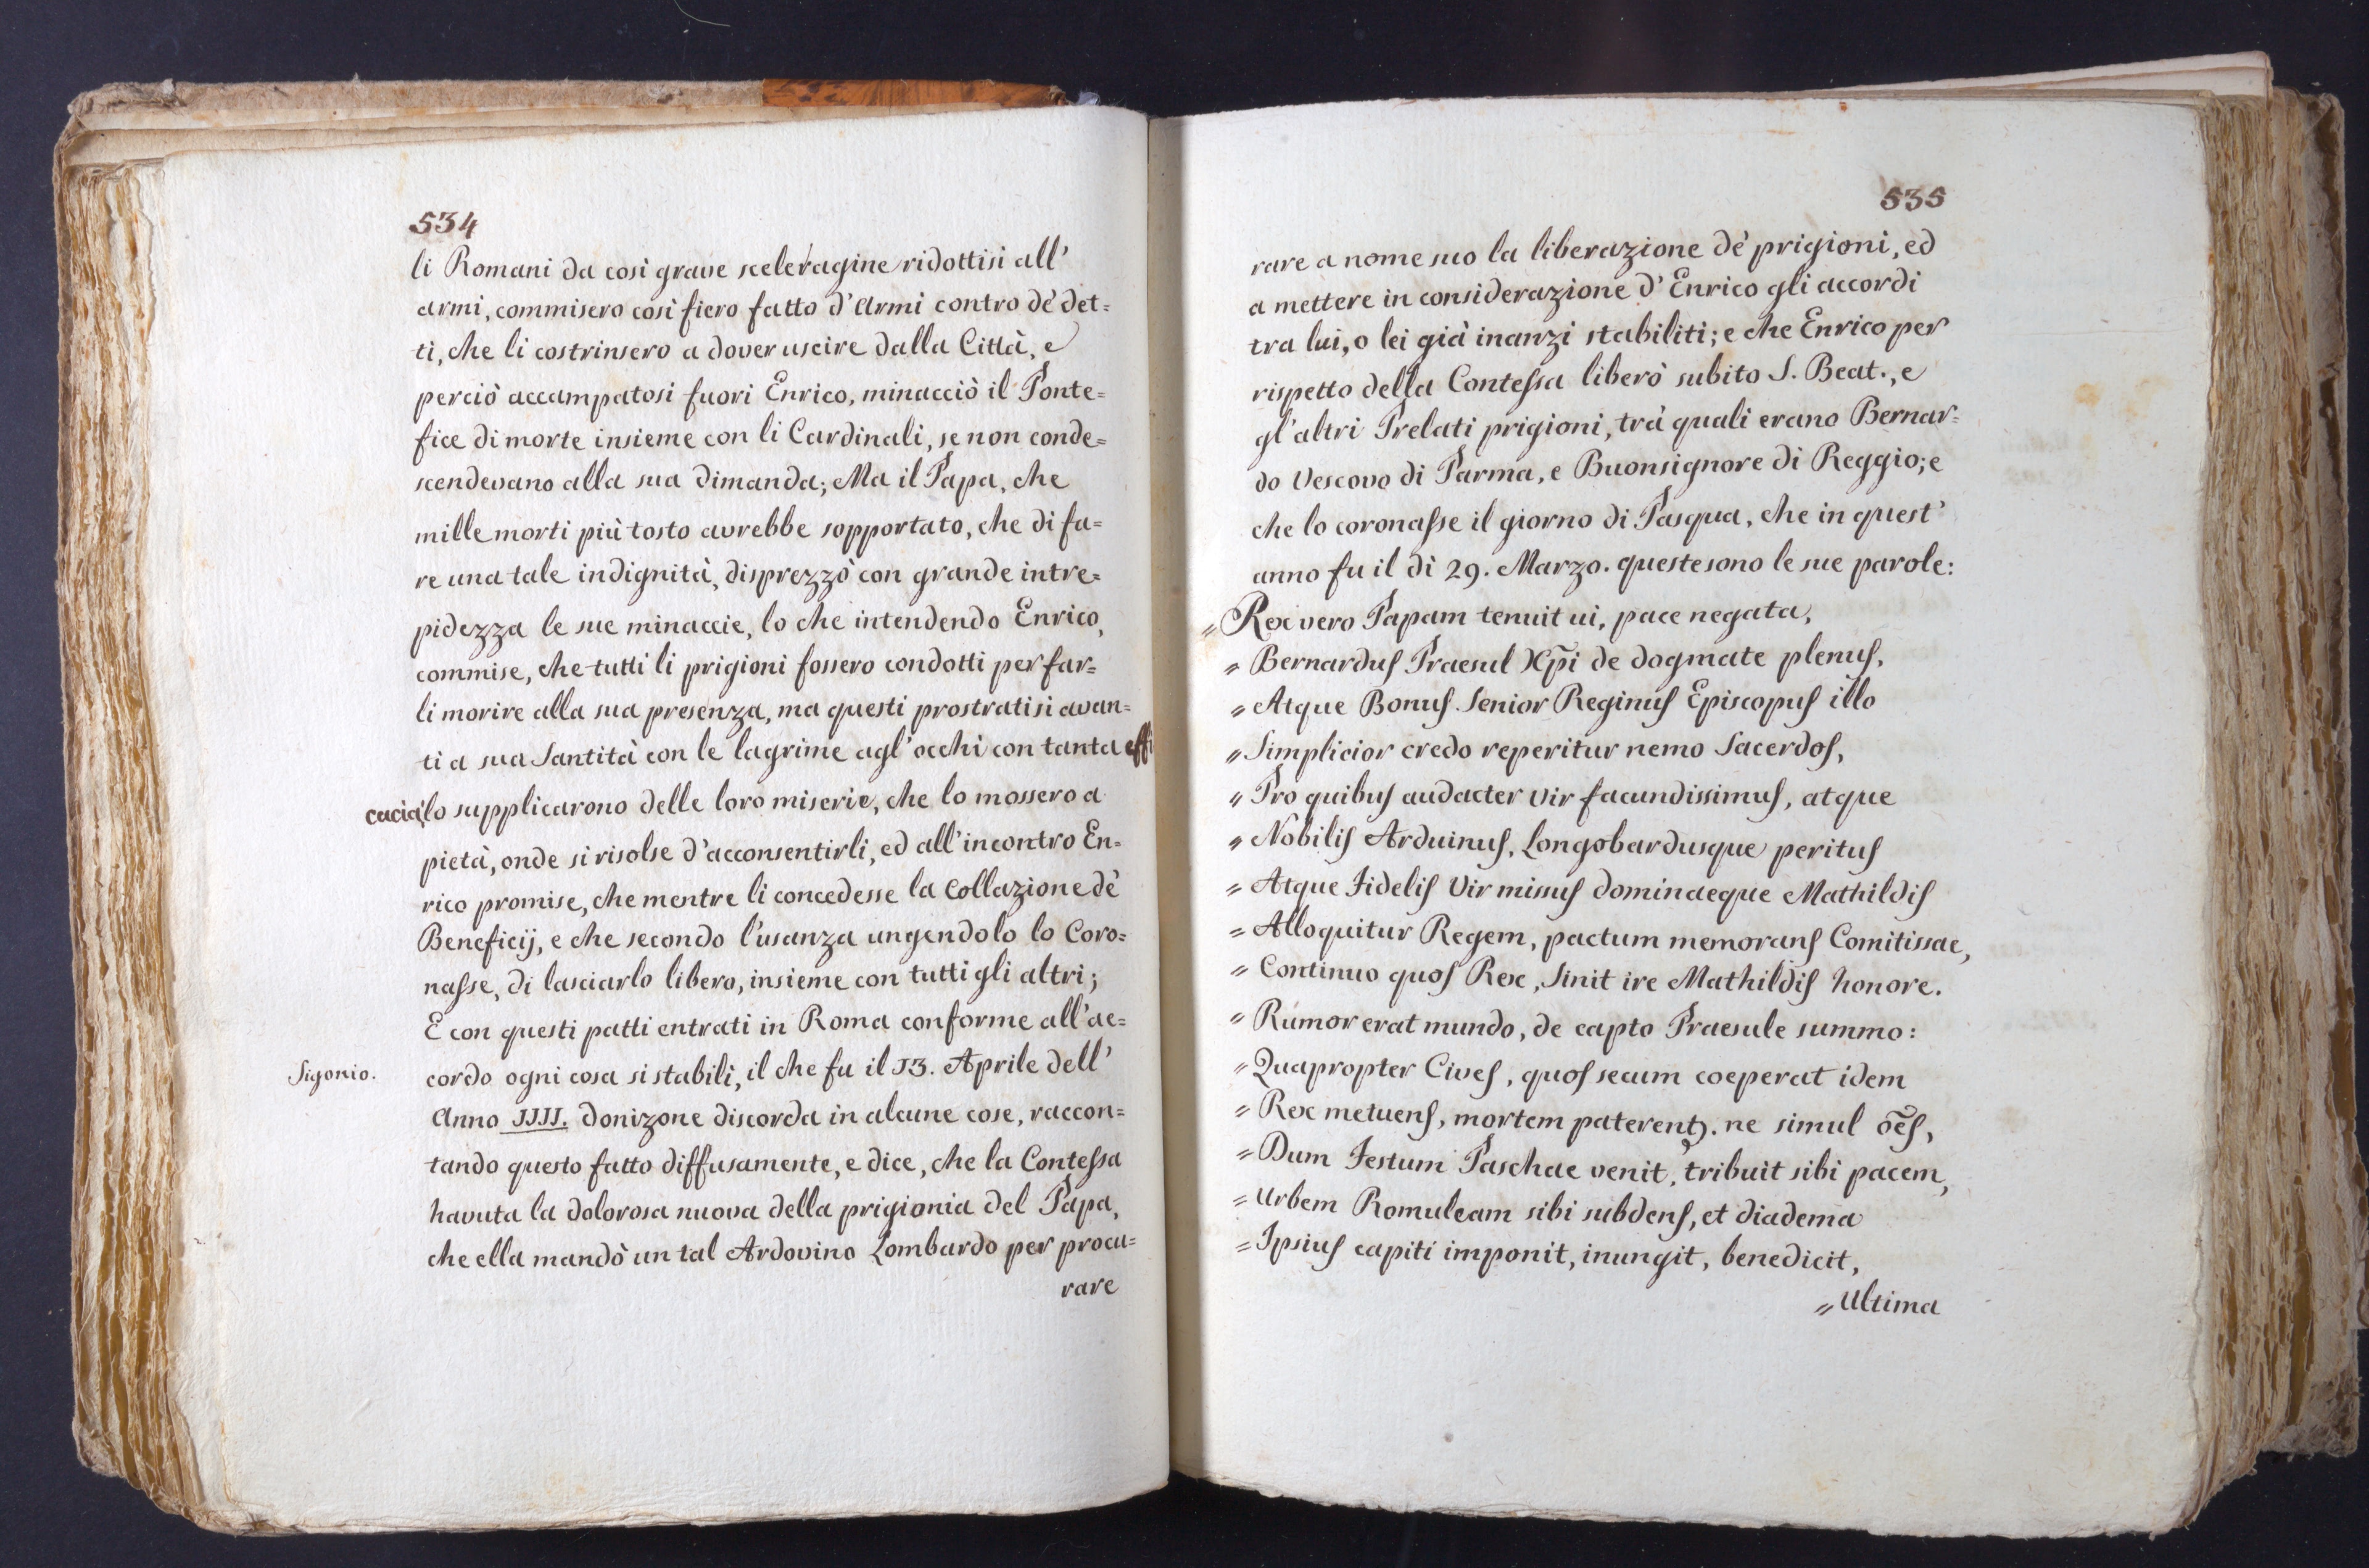 534
li Romani da così grave sceleragine ridottisi all'
armi, commisero così fiero fatto d'armi contro de' det=
ti, che li costrinsero a dover uscire dalla Città, e
perciò accampatosi fuori Enrico, minacciò il Ponte=
fice di morte insieme con li Cardinali, se non conde=
scendevano alla sua dimanda; Ma il Papa, che
mille morti più tosto avrebbe sopportato, che di fa=
re una tale indignità, disprezzò con grande intre=
pidezza le sue minaccie, lo che intendendo Enrico,
commise, che tutti li prigioni fossero condotti per far=
li morire alla sua presenza, ma questi prostratisi avan=
ti a sua Santità con le lagrime agl'occhi con tanta effi
cacia lo supplicarono delle loro miserie, che lo mossero a
pietà, onde si risolse d'acconsentirli, ed all'incontro En=
rico promise, che mentre li concedesse la Collazione de'
Beneficij, e che secondo l'usanza ungendolo lo Coro=
naſse, di lasciarlo libero, insieme con tutti gli altri;
E con questi patti entrati in Roma conforme all'ac=
Sigonio.
cordo ogni cosa si stabili, il che fu il 13. Aprile dell'
Anno 1111. donizone discorda in alcune cose, raccon=
tando questo fatto diffusamente, e dice, che la Conteſsa
havuta la dolorosa nuova della prigionia del Papa,
che ella mandò un tal Ardovino Lombardo per procu=
rare
535
rare a nome suo la liberazione de' prigioni, ed
a mettere in considerazione d'Enrico gli accordi
tra lui, o lei già inanzi stabiliti; e che Enrico per
rispetto della Conteſsa liberò subito S. Beat., e
gl'altri Prelati prigioni, trà quali erano Bernar=
do Vescovo di Parma, e Buonsignore di Reggio; e
che lo coronaſse il giorno di Pasqua, che in quest'
anno fu il dì 29. Marzo. queste sono le sue parole:
" Rex vero Papam tenuit ui, pace negata,
" Bernarduſ Praesul Xp̃i de dogmate plenuſ,
" Atque Bonuſ Senior Reginuſ Episcopuſ illo
" Simplicior credo reperitur nemo Sacerdoſ,
" Pro quibuſ audacter vir facundissimuſ, atque
" Nobiliſ Arduinuſ, Longobardusque perituſ
" Atque Fideliſ Vir missuſ dominaeque Mathildiſ
" Alloquitur Regem, pactum memoranſ Comitissae,
" Continuo quoſ Rex, Sinit ire Mathildiſ honore.
" Rumor erat mundo, de capto Praesule summo:
" Quapropter Civeſ, quoſ secum coeperat idem
" Rex metuenſ, mortem paterentꝫ. ne simul oẽſ,
" Dum Festum Paschae venit, tribuit sibi pacem,
" Urbem Romuleam sibi subdenſ, et diadema
" Ipsiuſ capiti imponit, inungit, benedicit,
" Ultima